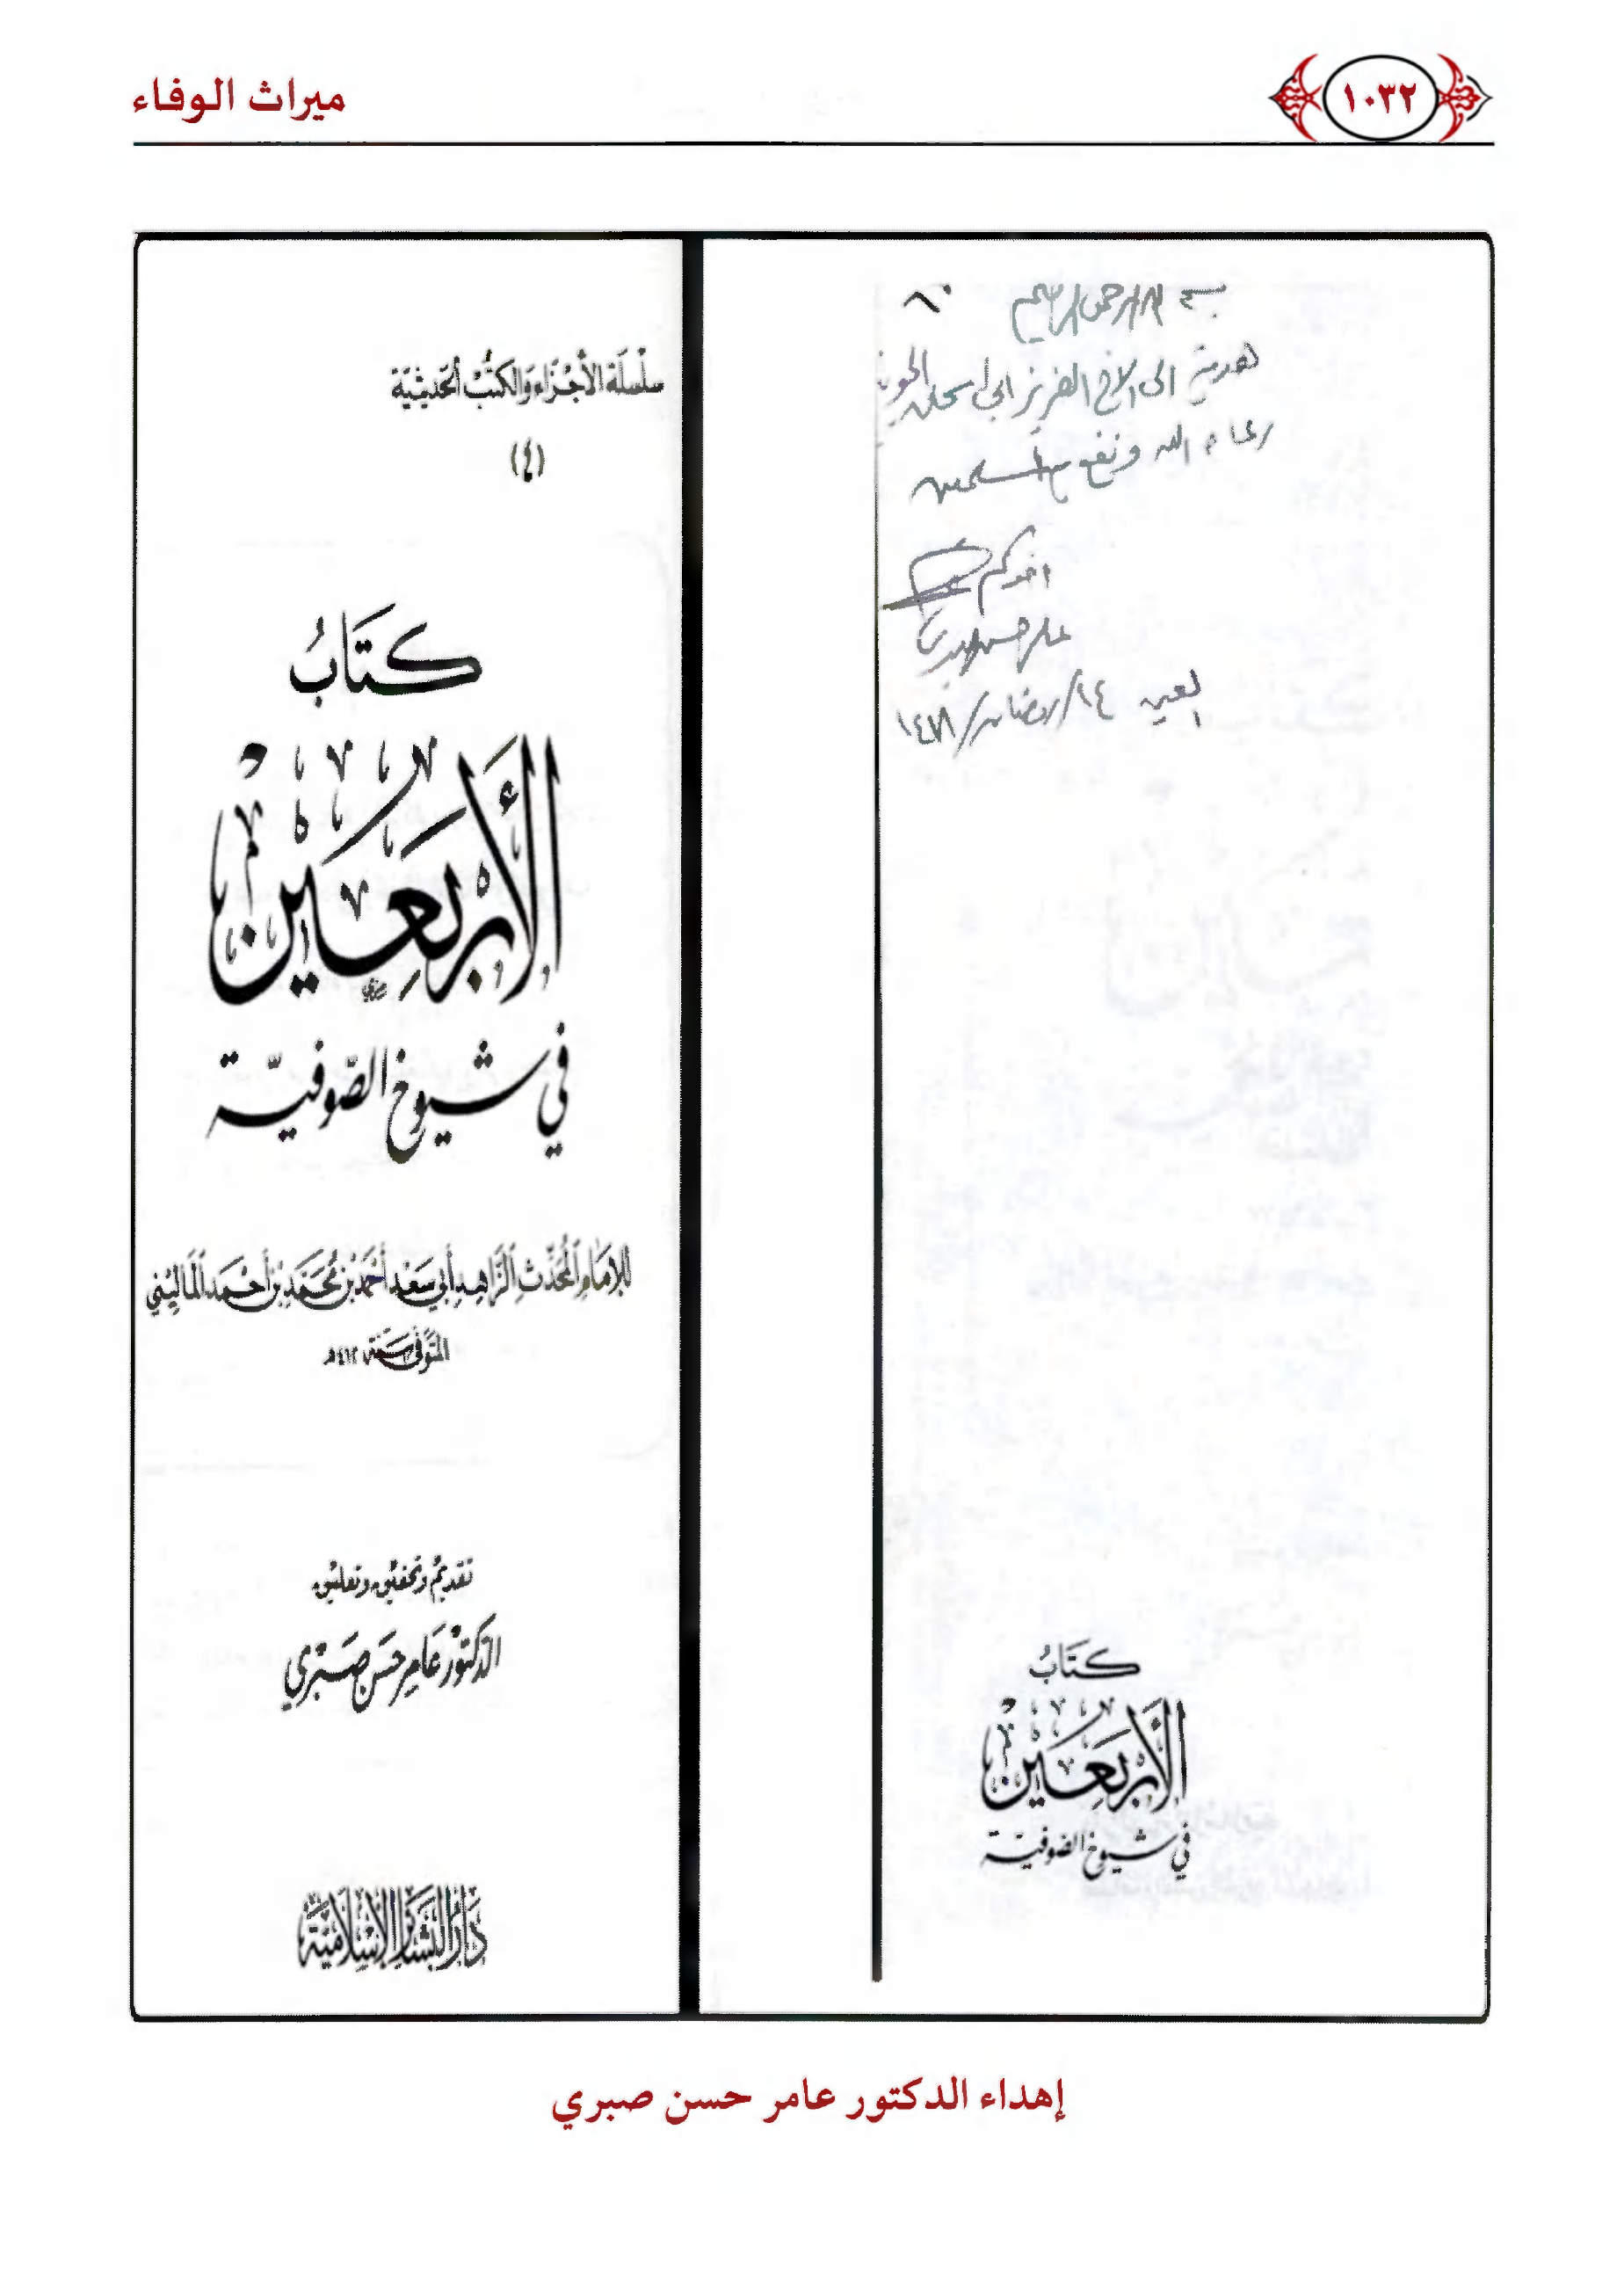 ١٠٣٢
ميراث الوفاء
بسم الله الرحمن الرحيم
هدية الى الاخ العزيز ابي اسحاق
رعاه الله ونفع به المسلمين
اخوكم
عامر حسن صبري
العين ١٤/رمضان/
كتاب
الأربعين
في شيوخ الصوفية
سلسلة الأجزاء والكتب الحديثية
(٤)
كتَابُ
الأَرْبَعِيْن
في شيوخ الصّوفيّة
للإمَام المُحَدِّث الزَّاهِد أَبي سَعْد أَحْمَد بْن مُحَمَّد بْن أَحْمَد المَالِيْني
المتَوفّى سَنَة ٤١٢ هـ
تقديم وتحقيق وتعليق
الدكتور عَامر حسَن صَبْري
دَارُ البَشَائر الإسْلاميَّة
إهداء الدكتور عامر حسن صبري